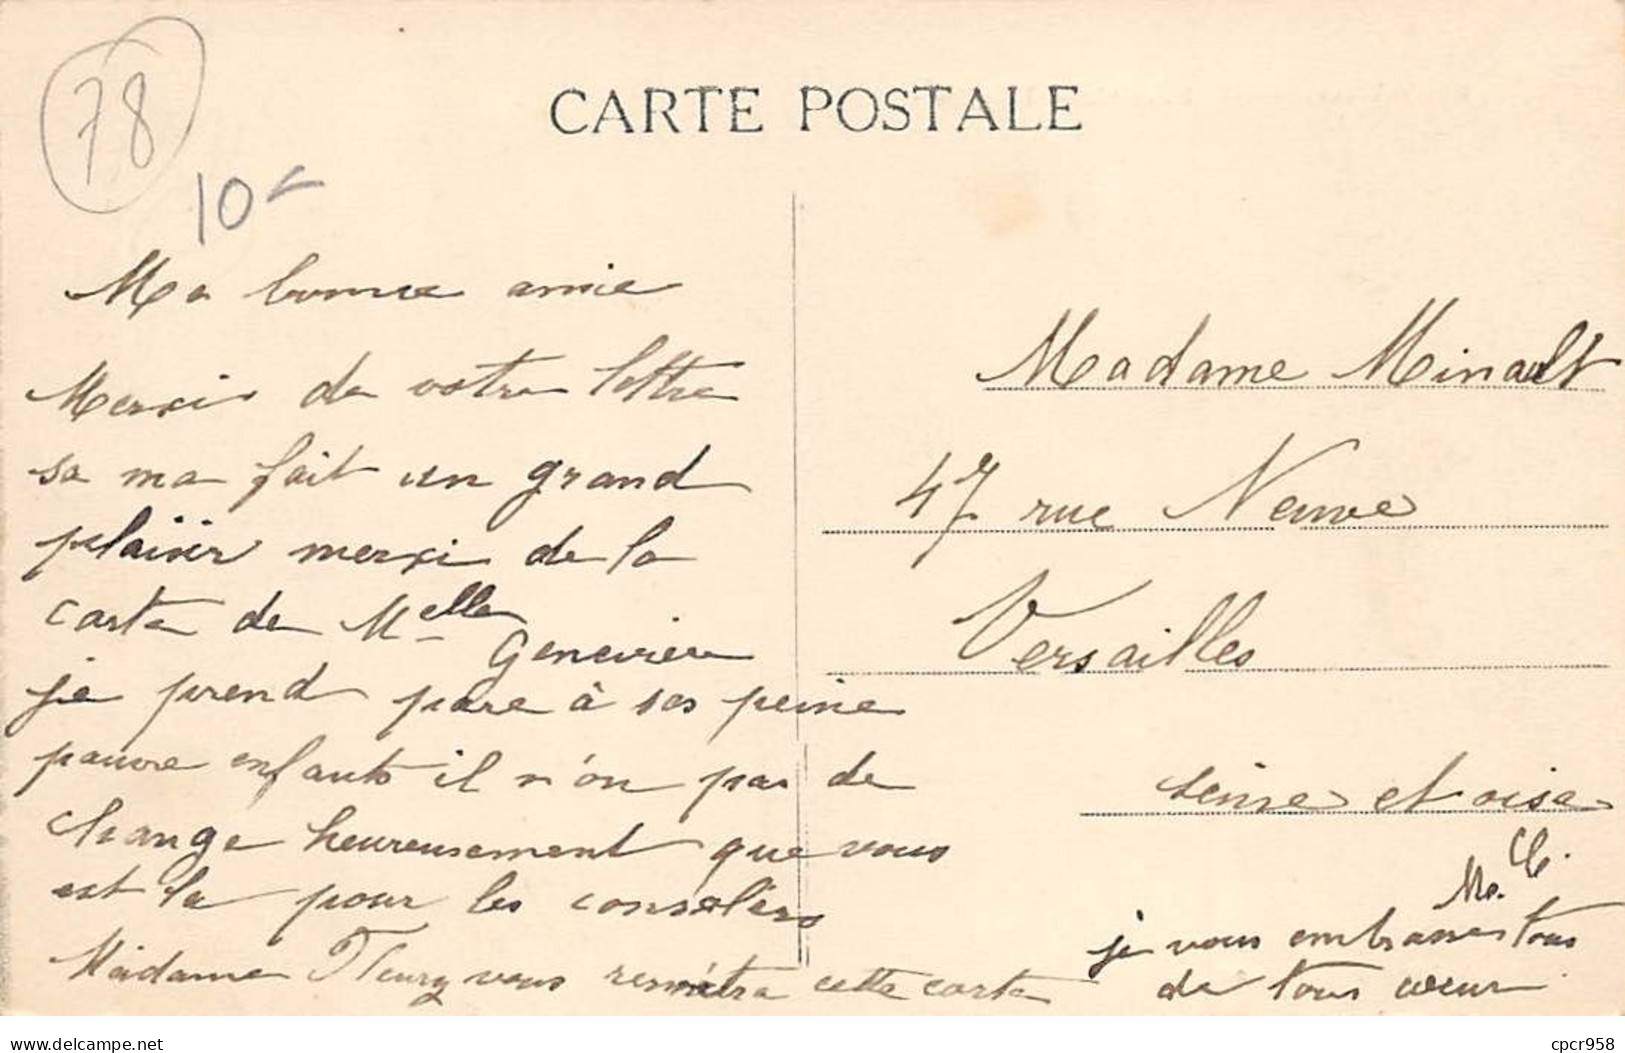 78
CARTE POSTALE
10
Ma bonne amie
Mersi de votre lettre
sa ma fait un grand
plaisir mersi de la
carte de Melle
Genevieve
je prend pare à ses peine
pauvre enfants il n'on pas de
change heureusement que vous
est la pour les consolers
Madame Fleury vous remetra cette carte
Madame Minault
47 rue Neuve
Versailles
seine et oise
je vous embrasses tous
de tous coeur
www.delcampe.net
cpcr958